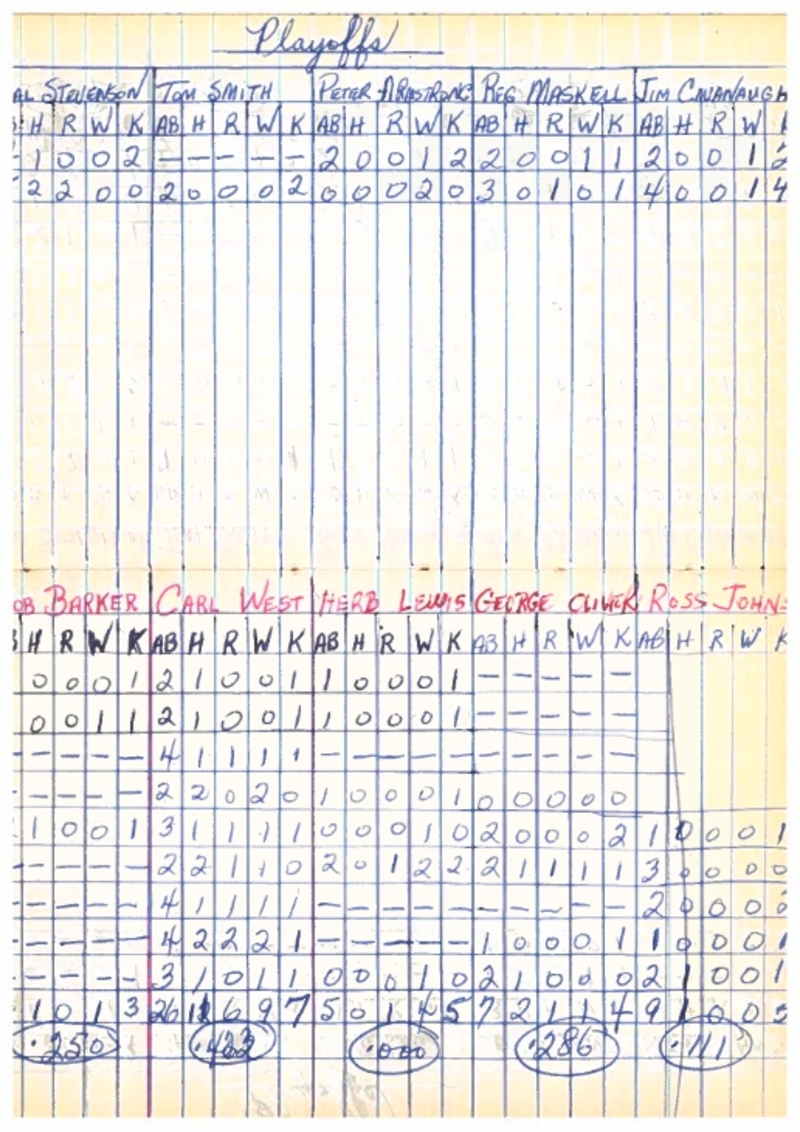 Playoffs
AL STEVENSON TOM SMITH PETER ARMSTRONG REG MASKELL JIM CAVANAUGH
H R W K AB H R W K AB H R W K AB H R W K AB H R W
1 0 0 2 — — — — — 2 0 0 1 2 2 0 0 1 1 2 0 0 1 2
2 2 0 0 2 0 0 0 2 0 0 0 2 0 3 0 1 0 1 4 0 0 1 4
OB BARKER CARL WEST HERB LEWIS GEORGE OLIVER ROSS JOHN
H R W K AB H R W K AB H R W K AB H R W K AB H R W K
0 0 0 1 2 1 0 0 1 1 0 0 0 1 — — — — —
0 0 1 1 2 1 0 0 1 1 0 0 0 1 — — — — —
— — — — 4 1 1 1 1 — — — — — — — — — —
— — — — 2 2 0 2 0 1 0 0 0 1 0 0 0 0 0
1 0 0 1 3 1 1 1 1 0 0 0 1 0 2 0 0 0 2 1 0 0 0 1
— — — — 2 2 1 1 0 2 0 1 2 2 2 1 1 1 1 3 0 0 0 0
— — — — 4 1 1 1 1 — — — — — — — — — — 2 0 0 0
— — — — 4 2 2 2 1 — — — — — 1 0 0 0 1 1 0 0 0 1
— — — — 3 1 0 1 1 0 0 0 1 0 2 1 0 0 0 2 1 0 0 1
1 0 1 3 26 11 6 9 7 5 0 1 4 5 7 2 1 1 4 9 1 0 0
.250 .423 .000 .286 .111